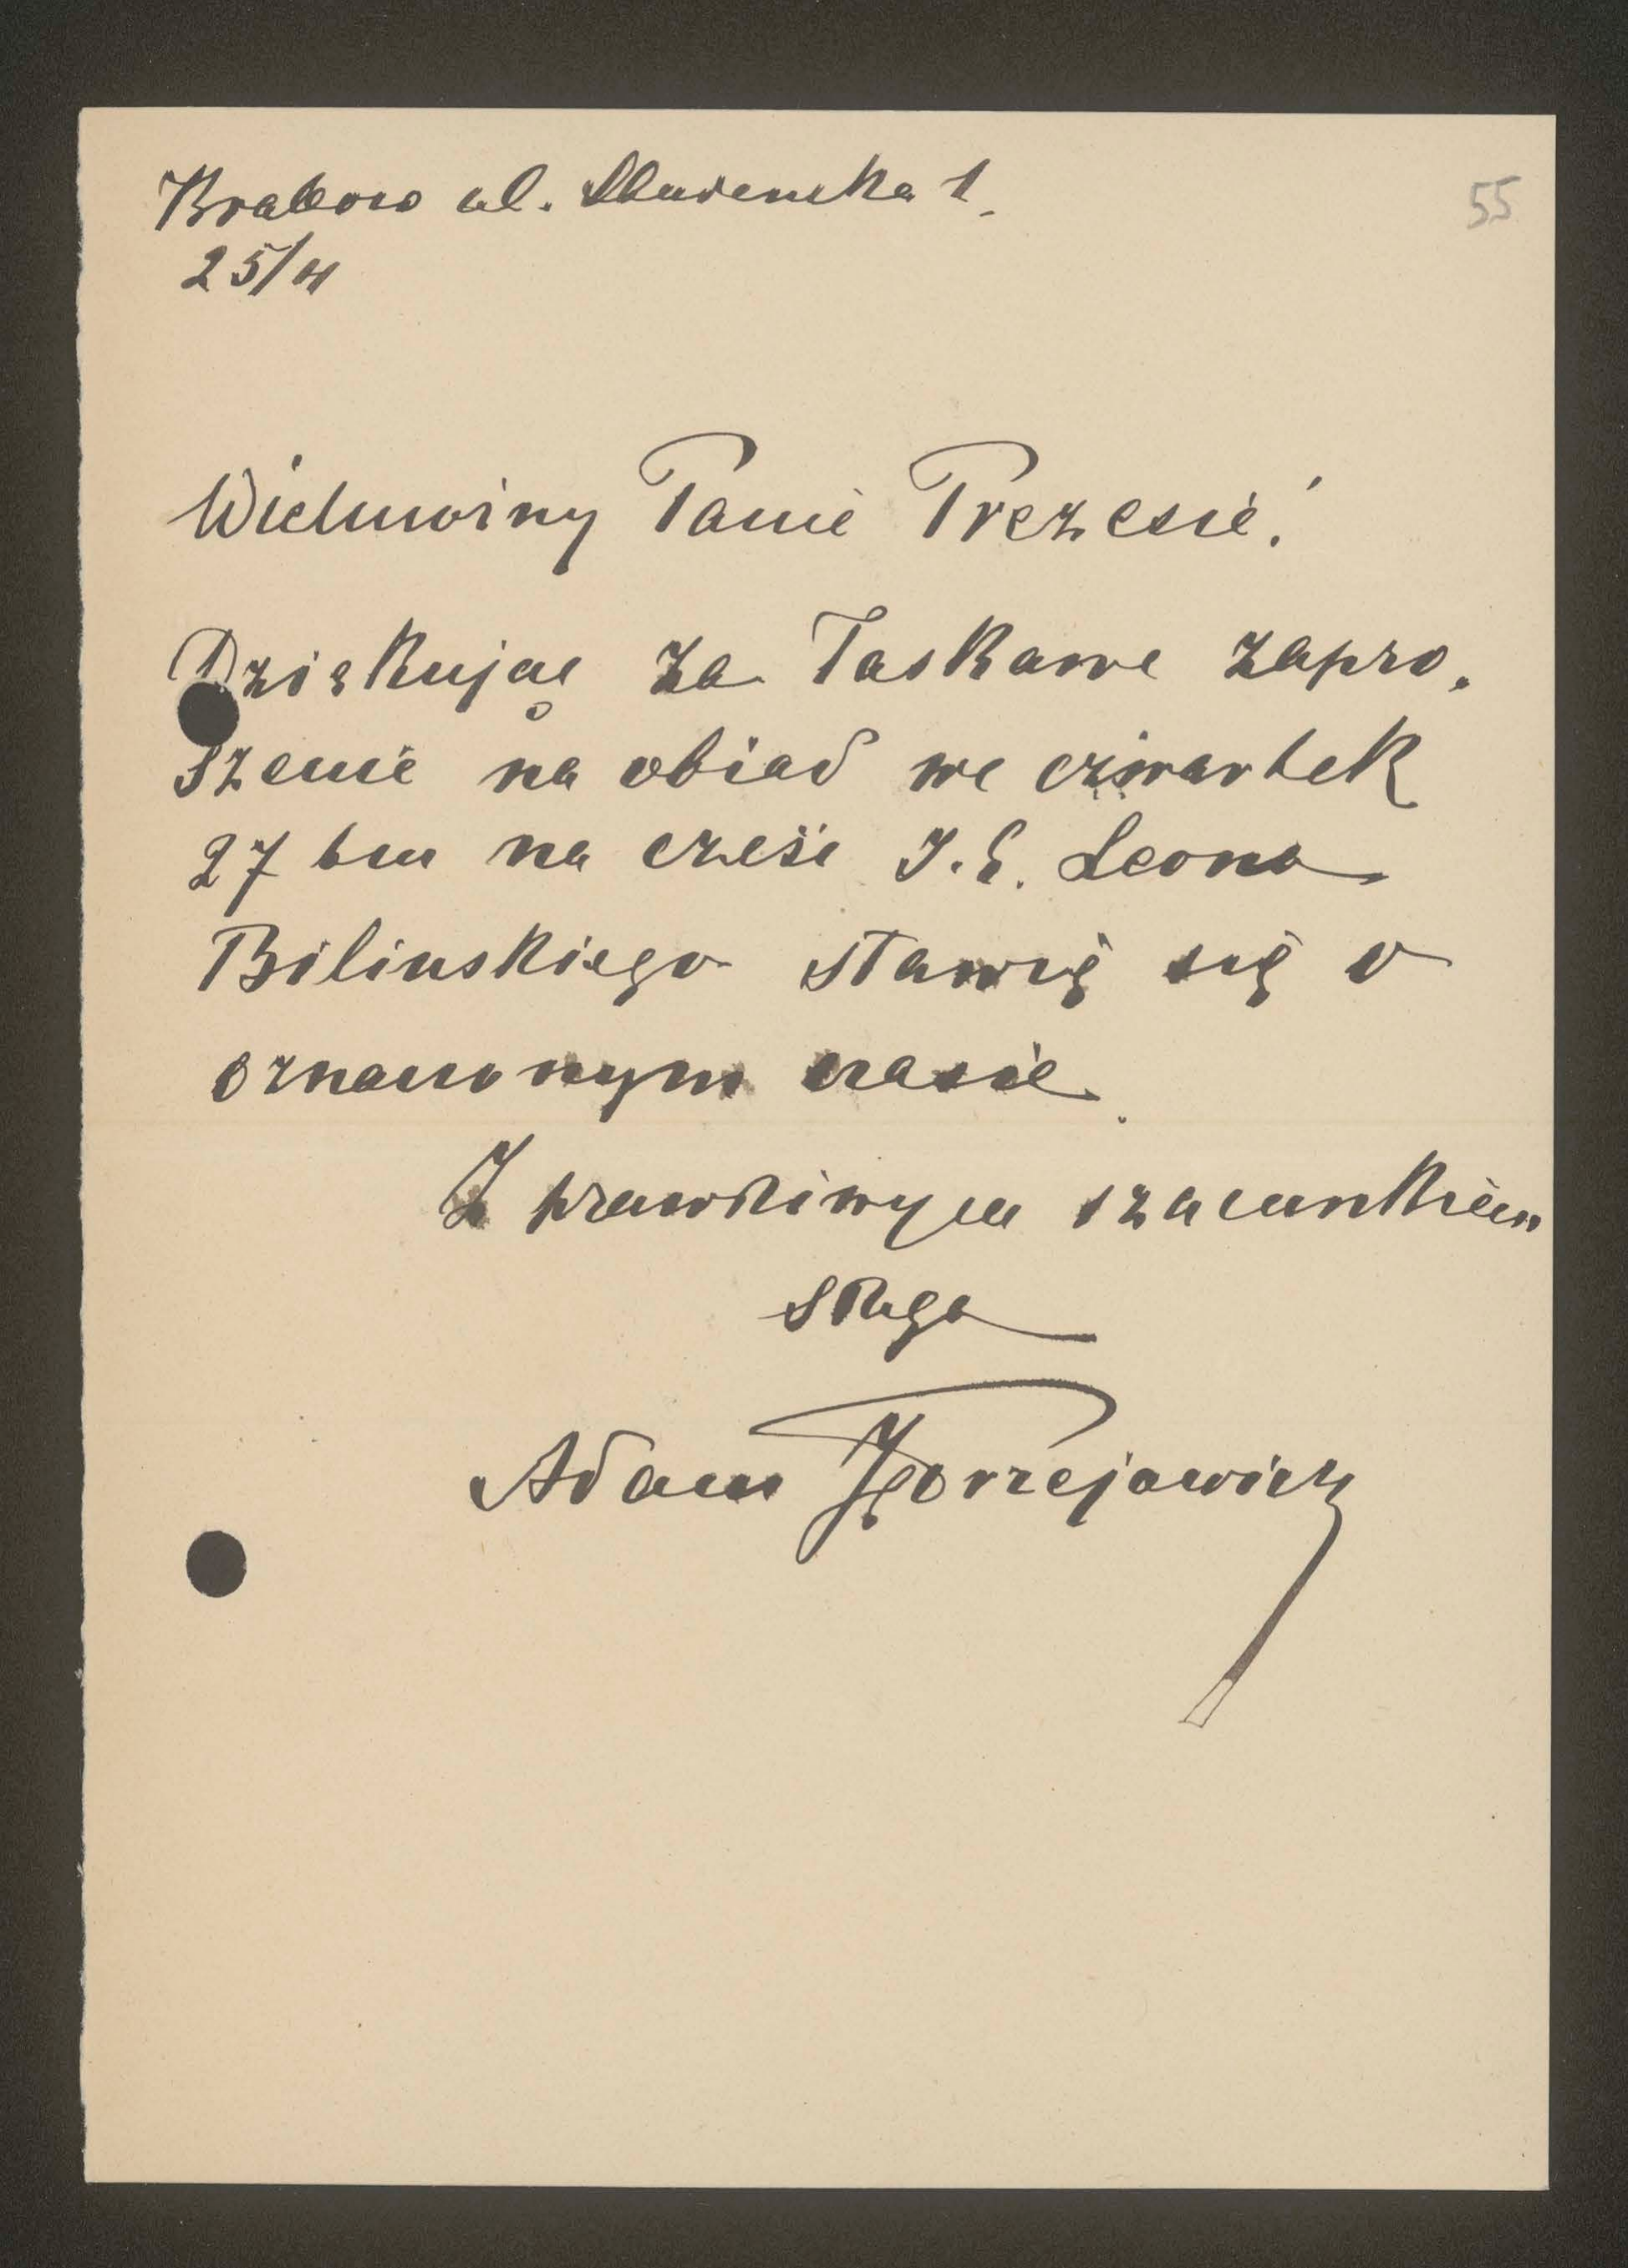 Krakow ul. Studencka 1.
55
25/4
Wielmożny Panie Prezesie!
Dziękując za łaskawe zapro-
szenie na obiad we czwartek
27 bm na cześć J.E. Leona
Bilinskiego stawię się o
oznaczonym czasie.
Z prawdziwym szacunkiem
sługa
Adam